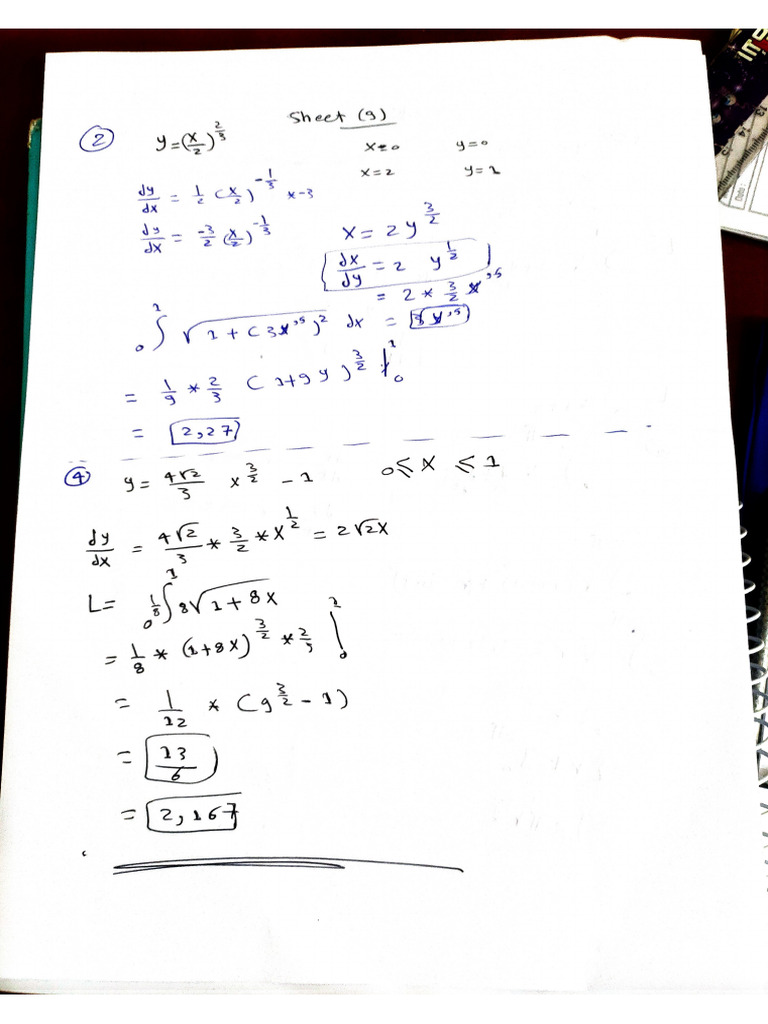 Sheet (9)
② y=(x/2)^(2/3) x=0 y=0
x=2 y=1
dy/dx = 1/2 (x/2)^(-1/3) * -3
dy/dx = -3/2 (x/2)^(-1/3) x = 2 y^(3/2)
dx/dy = 2 y^(1/2)
= 2 * 3/2 y^,5
0∫1 √(1+(3y^,5)^2) dx = 3y^,5
= 1/9 * 2/3 (1+9y)^(3/2) |0 1
= 2,27
④ y = 4√2/3 x^(3/2) - 1 0 ≤ x ≤ 1
dy/dx = 4√2/3 * 3/2 * x^(1/2) = 2√2x
L = 1/8 0∫1 8√(1+8x)
= 1/8 * (1+8x)^(3/2) * 2/3 |0 1
= 1/12 * (9^(3/2) - 1)
= 13/6
= 2,167